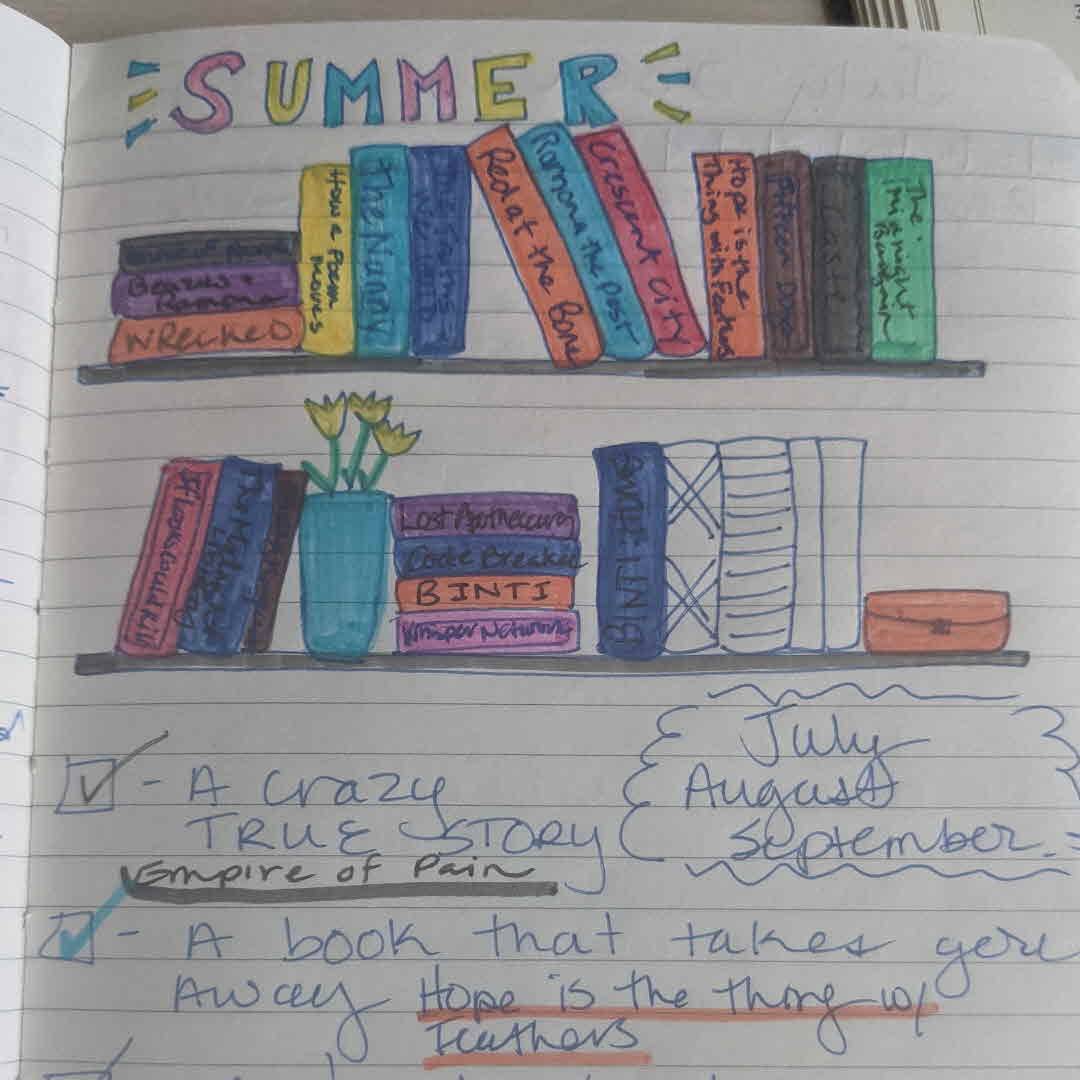 SUMMER
Empire of Pain
Beezus +
Ramona
WRecked
How a Poem
moves
The Nanny
Red at the Bone
Ramona the Pest
Crescent City
Hope is the
Thing with Feathers
Caste
The
Midnight
Bargain
If Looks Could Kill
Lost Apothecary
Code Breaker
BINTI
Whisper Network
July
August
September
- A Crazy
TRUE STORY
Empire of Pain
- A book that takes you
Away Hope is the thing w/
Feathers